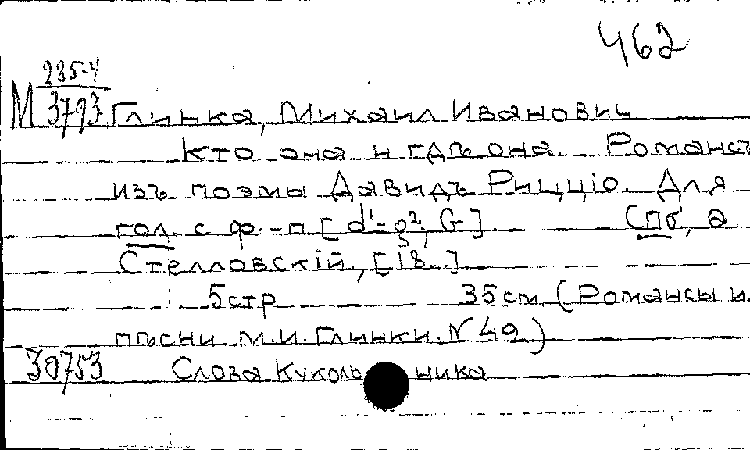 462
М 235-4
3793 Глинка, Михаил Иванович
Кто она и гдѣ она. Романсъ
изъ поэмы Давидъ Риццiо. Для
гол. с ф.-п [d'-g², G-] Спб, а
Стелловскiй, [18..]
5стр 35см (Романсы и
пѣсни М.И. Глинки. N 49)
30753 Слова Кукольника